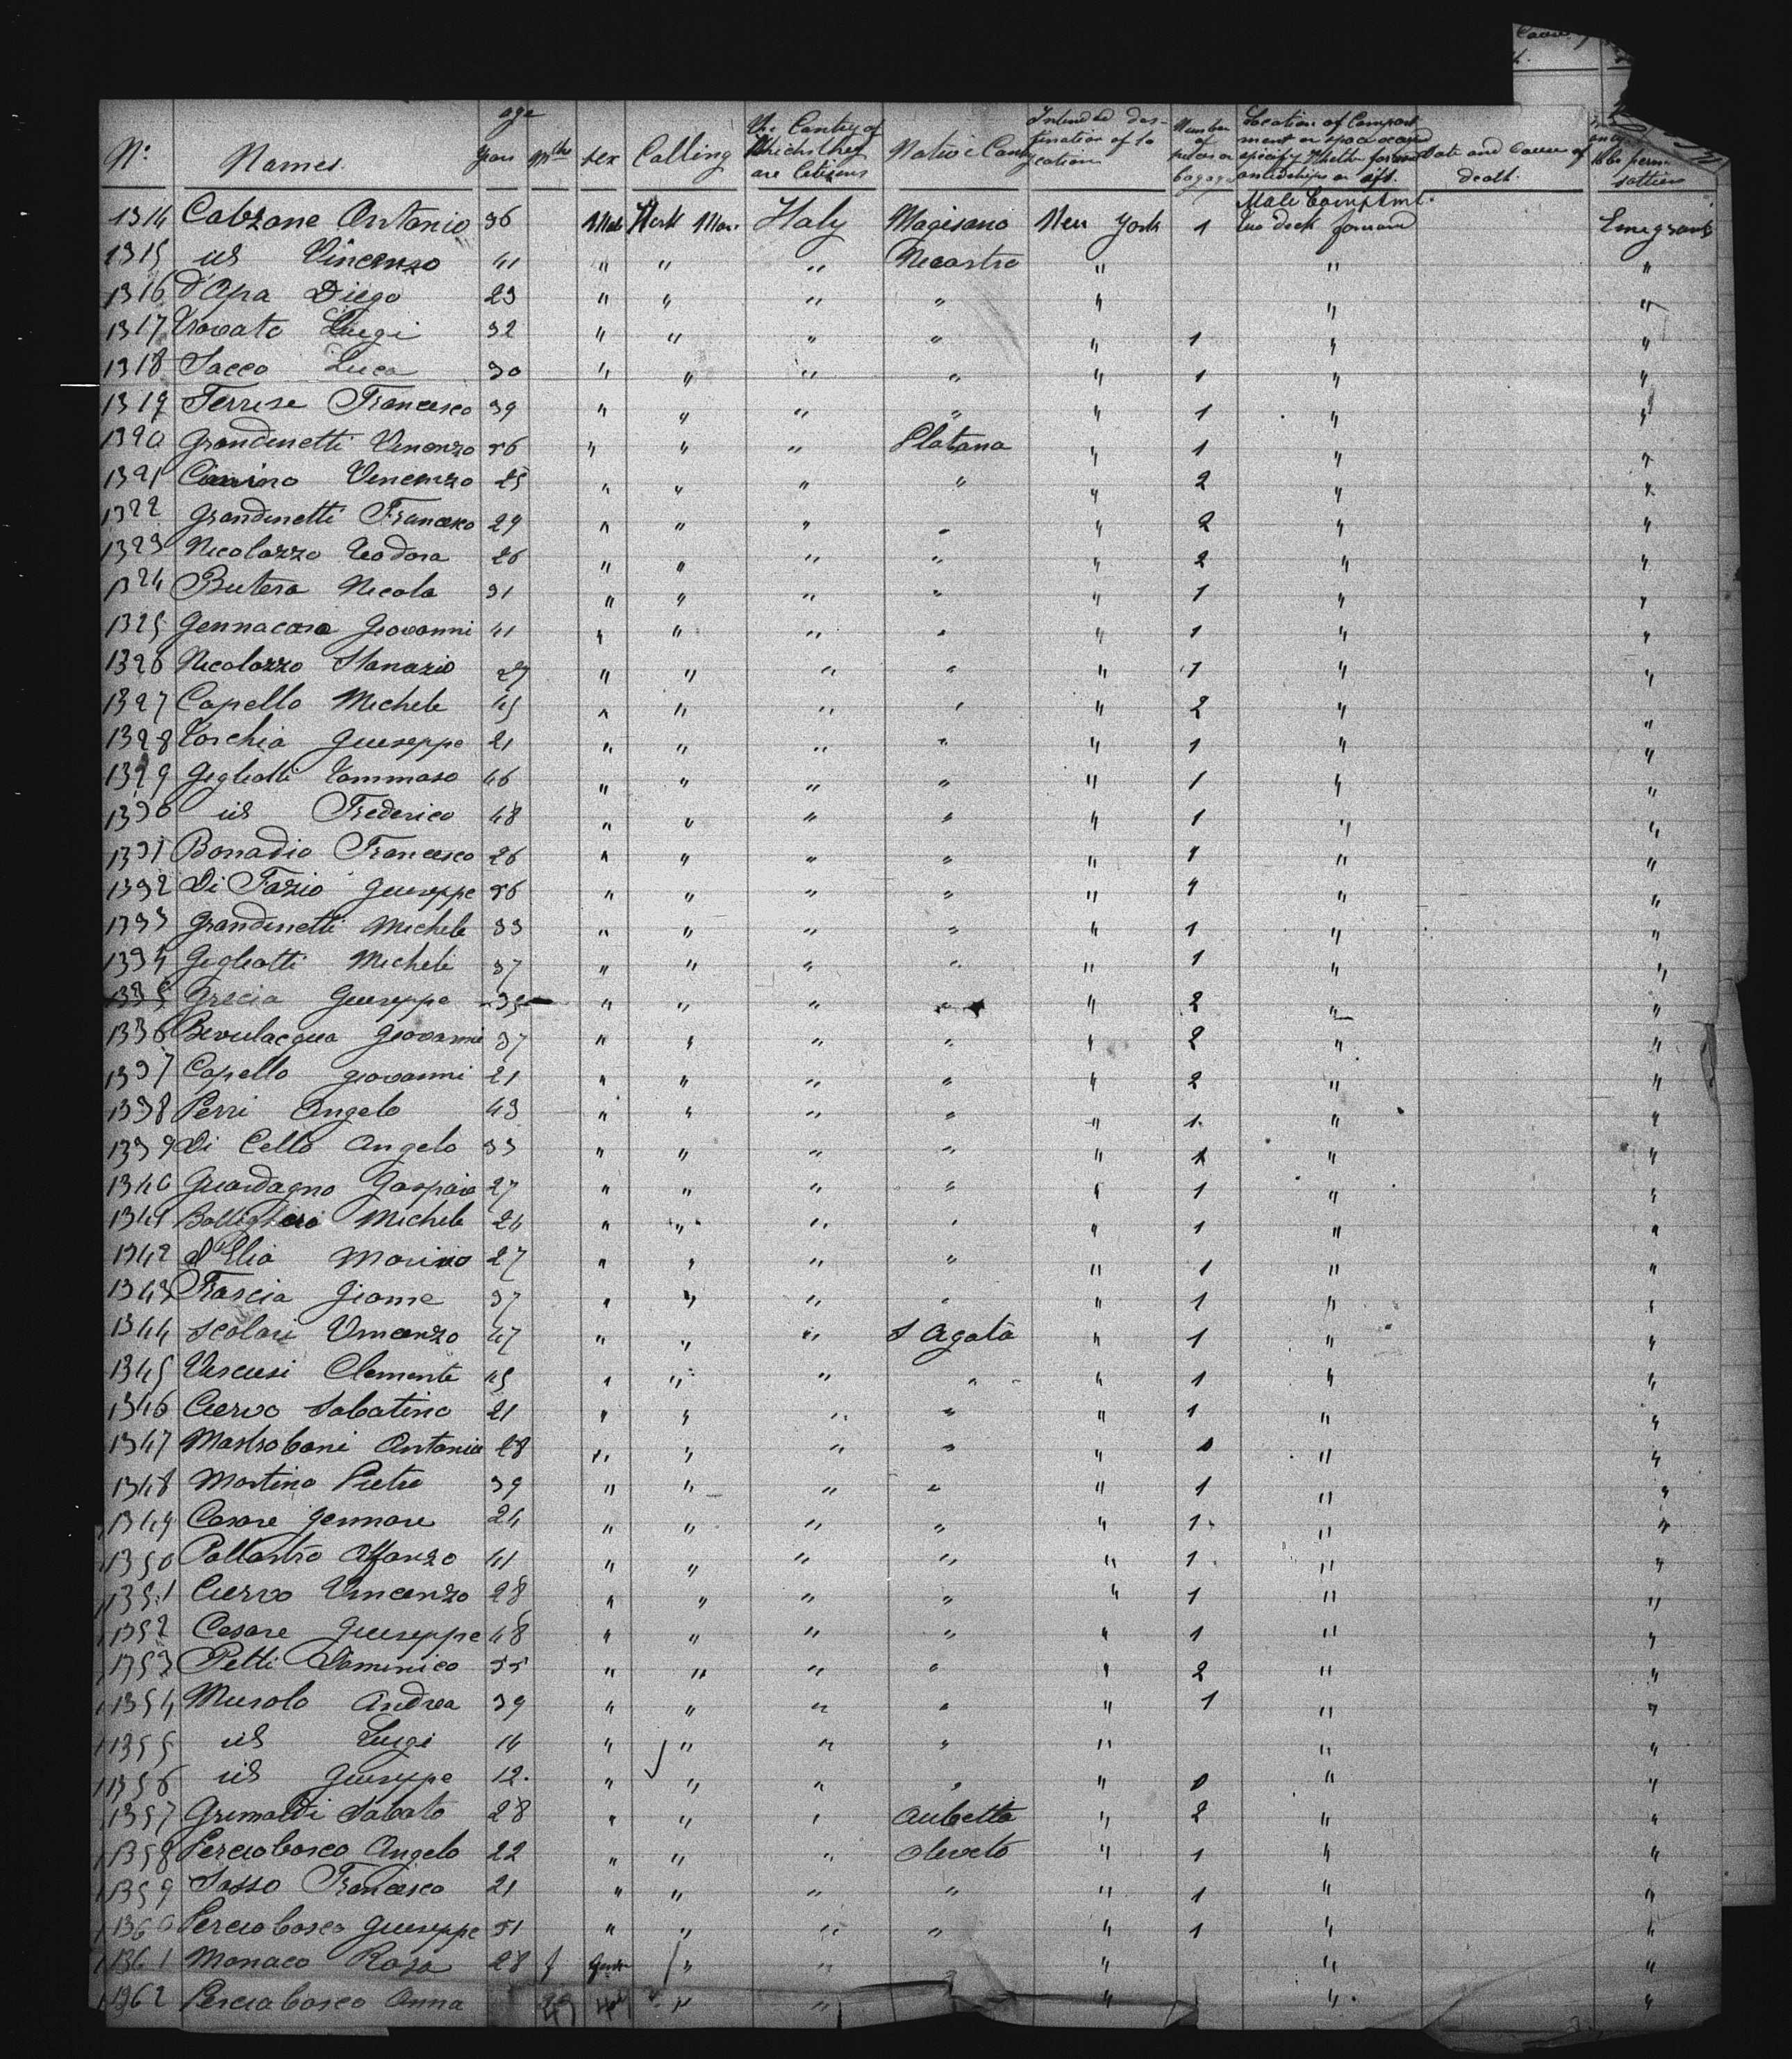 Nº Names. age Years Mths sex Calling The Contry of Which they are Citizens Native Contry Intended destination or location Number of pieces of bagage Location of Compartment or space occ specify Whether forward amidships or aft. Date and Cause of death.
1314 Calzone Antonio 36 Male Work Man. Italy Magisano New York 1 Male Compmt. Two deck forward Emigrants
1315 id Vincenzo 41 " " " Nicastro " " "
1316 d'Apa Diego 23 " " " " " " "
1317 Trovato Luigi 32 " " " " " 1 " "
1318 Sacco Luca 30 " " " " " 1 " "
1319 Terrise Francesco 39 " " " " " 1 " "
1320 Grandinetti Vincenzo 56 " " " Platana " 1 " "
1321 Vincenzo 25 " " " " " 2 " "
1322 Grandinetti Francesco 29 " " " " " 2 " "
1323 Nicolazzo Teodora 26 " " " " " 2 " "
1324 Butera Nicola 31 " " " " " 1 " "
1325 Gennacaro Giovanni 41 " " " " " 1 " "
1326 Nicolazzo 27 " " " " " 1 " "
1327 Capello Michele 45 " " " " " 2 " "
1328 Torchia Giuseppe 21 " " " " " 1 " "
1329 Gigliotti Tommaso 46 " " " " " 1 " "
1330 id Frederico 48 " " " " " 1 " "
1331 Bonadio Francesco 26 " " " " " 1 " "
1332 Di Fazio Giuseppe 56 " " " " " 1 " "
1333 Grandinetti Michele 33 " " " " " 1 " "
1334 Gigliotti Michele 37 " " " " " 1 " "
1335 Grecia Giuseppe 35 " " " " " 2 " "
1336 Bevulacqua Giovanni 37 " " " " " 2 " "
1337 Capello Giovanni 21 " " " " " 2 " "
1338 Perri Angelo 43 " " " " " 1 " "
1339 Di Cello Angelo 33 " " " " " 1 " "
1340 Guardagno Gaspare 27 " " " " " 1 " "
1341 Michele 24 " " " " " 1 " "
1342 d'Elia Marino 27 " " " " " 1 " "
1343 Frascia Giome 37 " " " " " 1 " "
1344 Scolari Vincenzo 47 " " " S Agata " 1 " "
1345 Vescusi Clemente 45 " " " " " 1 " "
1346 Cuervo Sabatino 21 " " " " " 1 " "
1347 Mastroboni Antonio 28 " " " " " 1 " "
1348 Martino Pietro 39 " " " " " 1 " "
1349 Casare Gennare 24 " " " " " 1 " "
1350 Pollastro Alfonzo 41 " " " " " 1 " "
1351 Cuervo Vincenzo 28 " " " " " 1 " "
1352 Cesare Giuseppe 48 " " " " " 1 " "
1353 Petti Dominico 55 " " " " " 2 " "
1354 Musolo Andrea 39 " " " " " 1 " "
1355 id Luigi 14 " " " " " " "
1356 id Giuseppe 12. " " " " " 1 " "
1357 Grimaldi Sabato 28 " " " Auletta " 2 " "
1358 Perciabosco Angelo 22 " " " Oliveto " 1 " "
1359 Sasso Francesco 21 " " " " " 1 " "
1360 Perciabosco Giuseppe 51 " " " " " 1 " "
1361 Monaco Rosa 28 f " " " " "
1362 Perciabosco Anna " " " " "